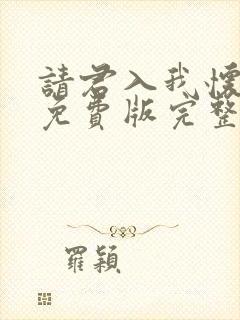 請君入我懷
免費版完整
羅穎